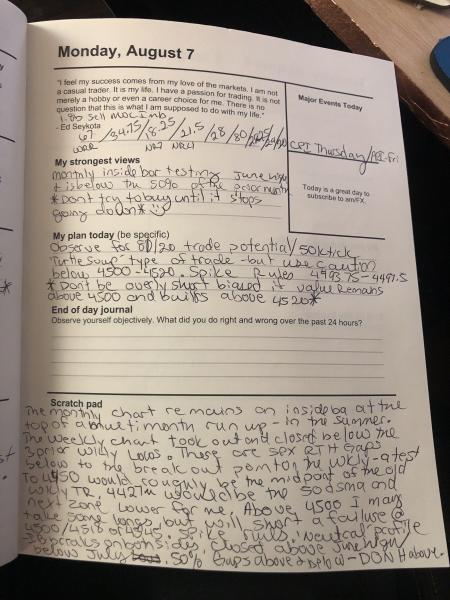 Monday, August 7
"I feel my success comes from my love of the markets. I am not
a casual trader. It is my life. I have a passion for trading. It is not
merely a hobby or even a career choice for me. There is no
question that this is what I am supposed to do with my life."
1.8b Sell MOC Imb
- Ed Seykota
67/34.75/18.25/21.5/28/80/
WRR NR7 NR4
Major Events Today
CPI Thursday/PPI-Fri
Today is a great day to
subscribe to am/FX.
My strongest views
monthly inside bar testing June high
+ is below the 50% of the prior month
*Don't try to buy until it stops
going down*
My plan today (be specific)
Observe for 80/20 trade potential/50k tick
"Turtle Soup" type of trade - but use caution
below 4500-4520. Spike Rules 4493.75-4497.5
*Don't be overly short biased if value remains
above 4500 and builds above 4520*
End of day journal
Observe yourself objectively. What did you do right and wrong over the past 24 hours?
Scratch pad
The monthly chart remains an inside bar at the
top of a multimonth run up - in the summer.
The weekly chart took out and closed below the
3 prior wkly lows. There are SPX RTH Gaps
below to the break out point on the wkly - a test
to 4450 would roughly be the midpoint of the old
wkly TR, 4427ish would be the 50dsma and
next zone lower for me. Above 4500 I may
take some longs but will short a failure @
4500/4518 or 4545. Spike rules. Neutral profile
closed above June high/
below July 50% Gaps above & below - DON above.